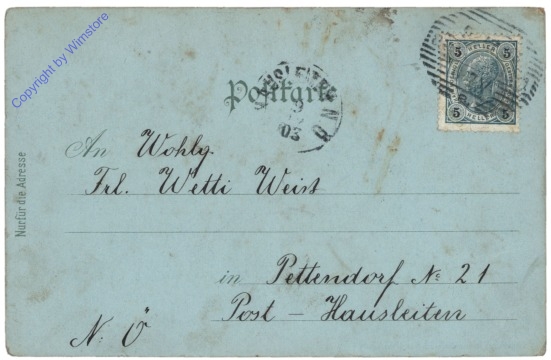 Copyright by Wimstore
5 HELLER 5
5 HELLER 5
HAUSLEITEN
03
N Ö
Postkarte
Nur für die Adresse
An Wohlg.
Frl. Wetti Weist
in Pettendorf № 21
Post – Hausleiten
N. Ö